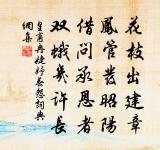 花枝出建章
鳳管發昭陽
借問承恩者
双蛾幾許長
皇甫冉婕妤怨詞典
網集